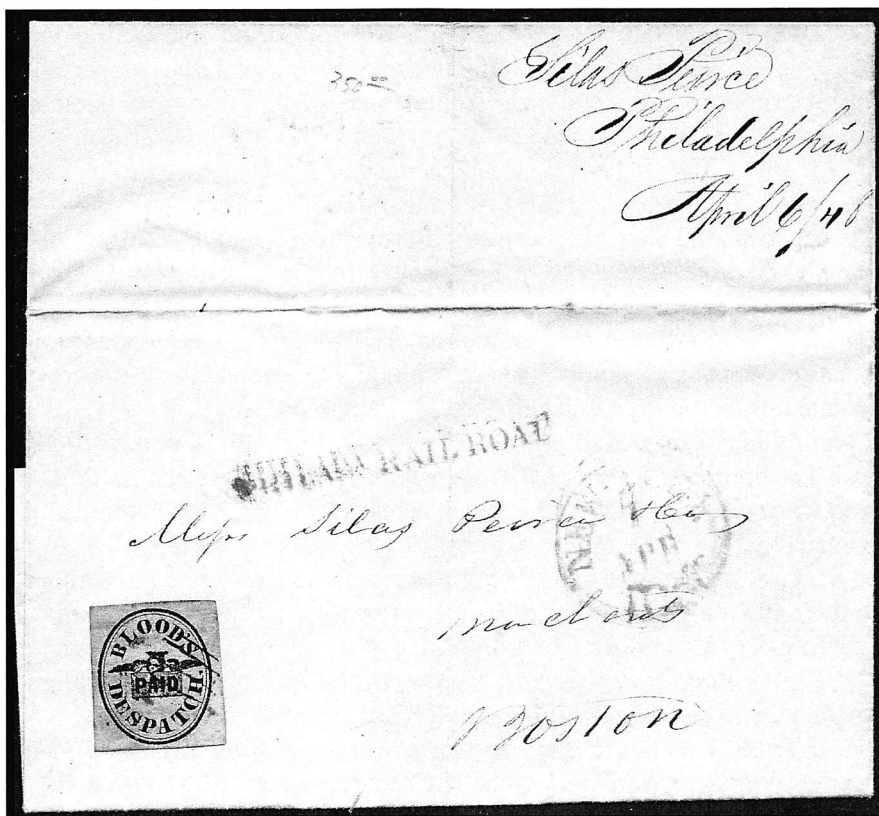 350.00
Silas Peirce
Philadelphia
April 6/48
PHILADA RAIL ROAD
Messrs Silas Peirce & Co
NEW
APR
Merchants
Boston
BLOOD'S
PAID
DESPATCH